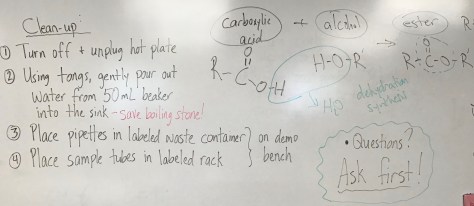 Clean-up:
① Turn off + unplug hot plate
② Using tongs, gently pour out
water from 50 mL beaker
into the sink - save boiling stone!
③ Place pipettes in labeled waste container } on demo
④ Place sample tubes in labeled rack } bench
Carboxylic acid + alcohol → ester
R-C
O
O-H
H-O-R'
R-C-O-R'
O
H₂O
dehydration
synthesis
• Questions?
Ask first!
R-